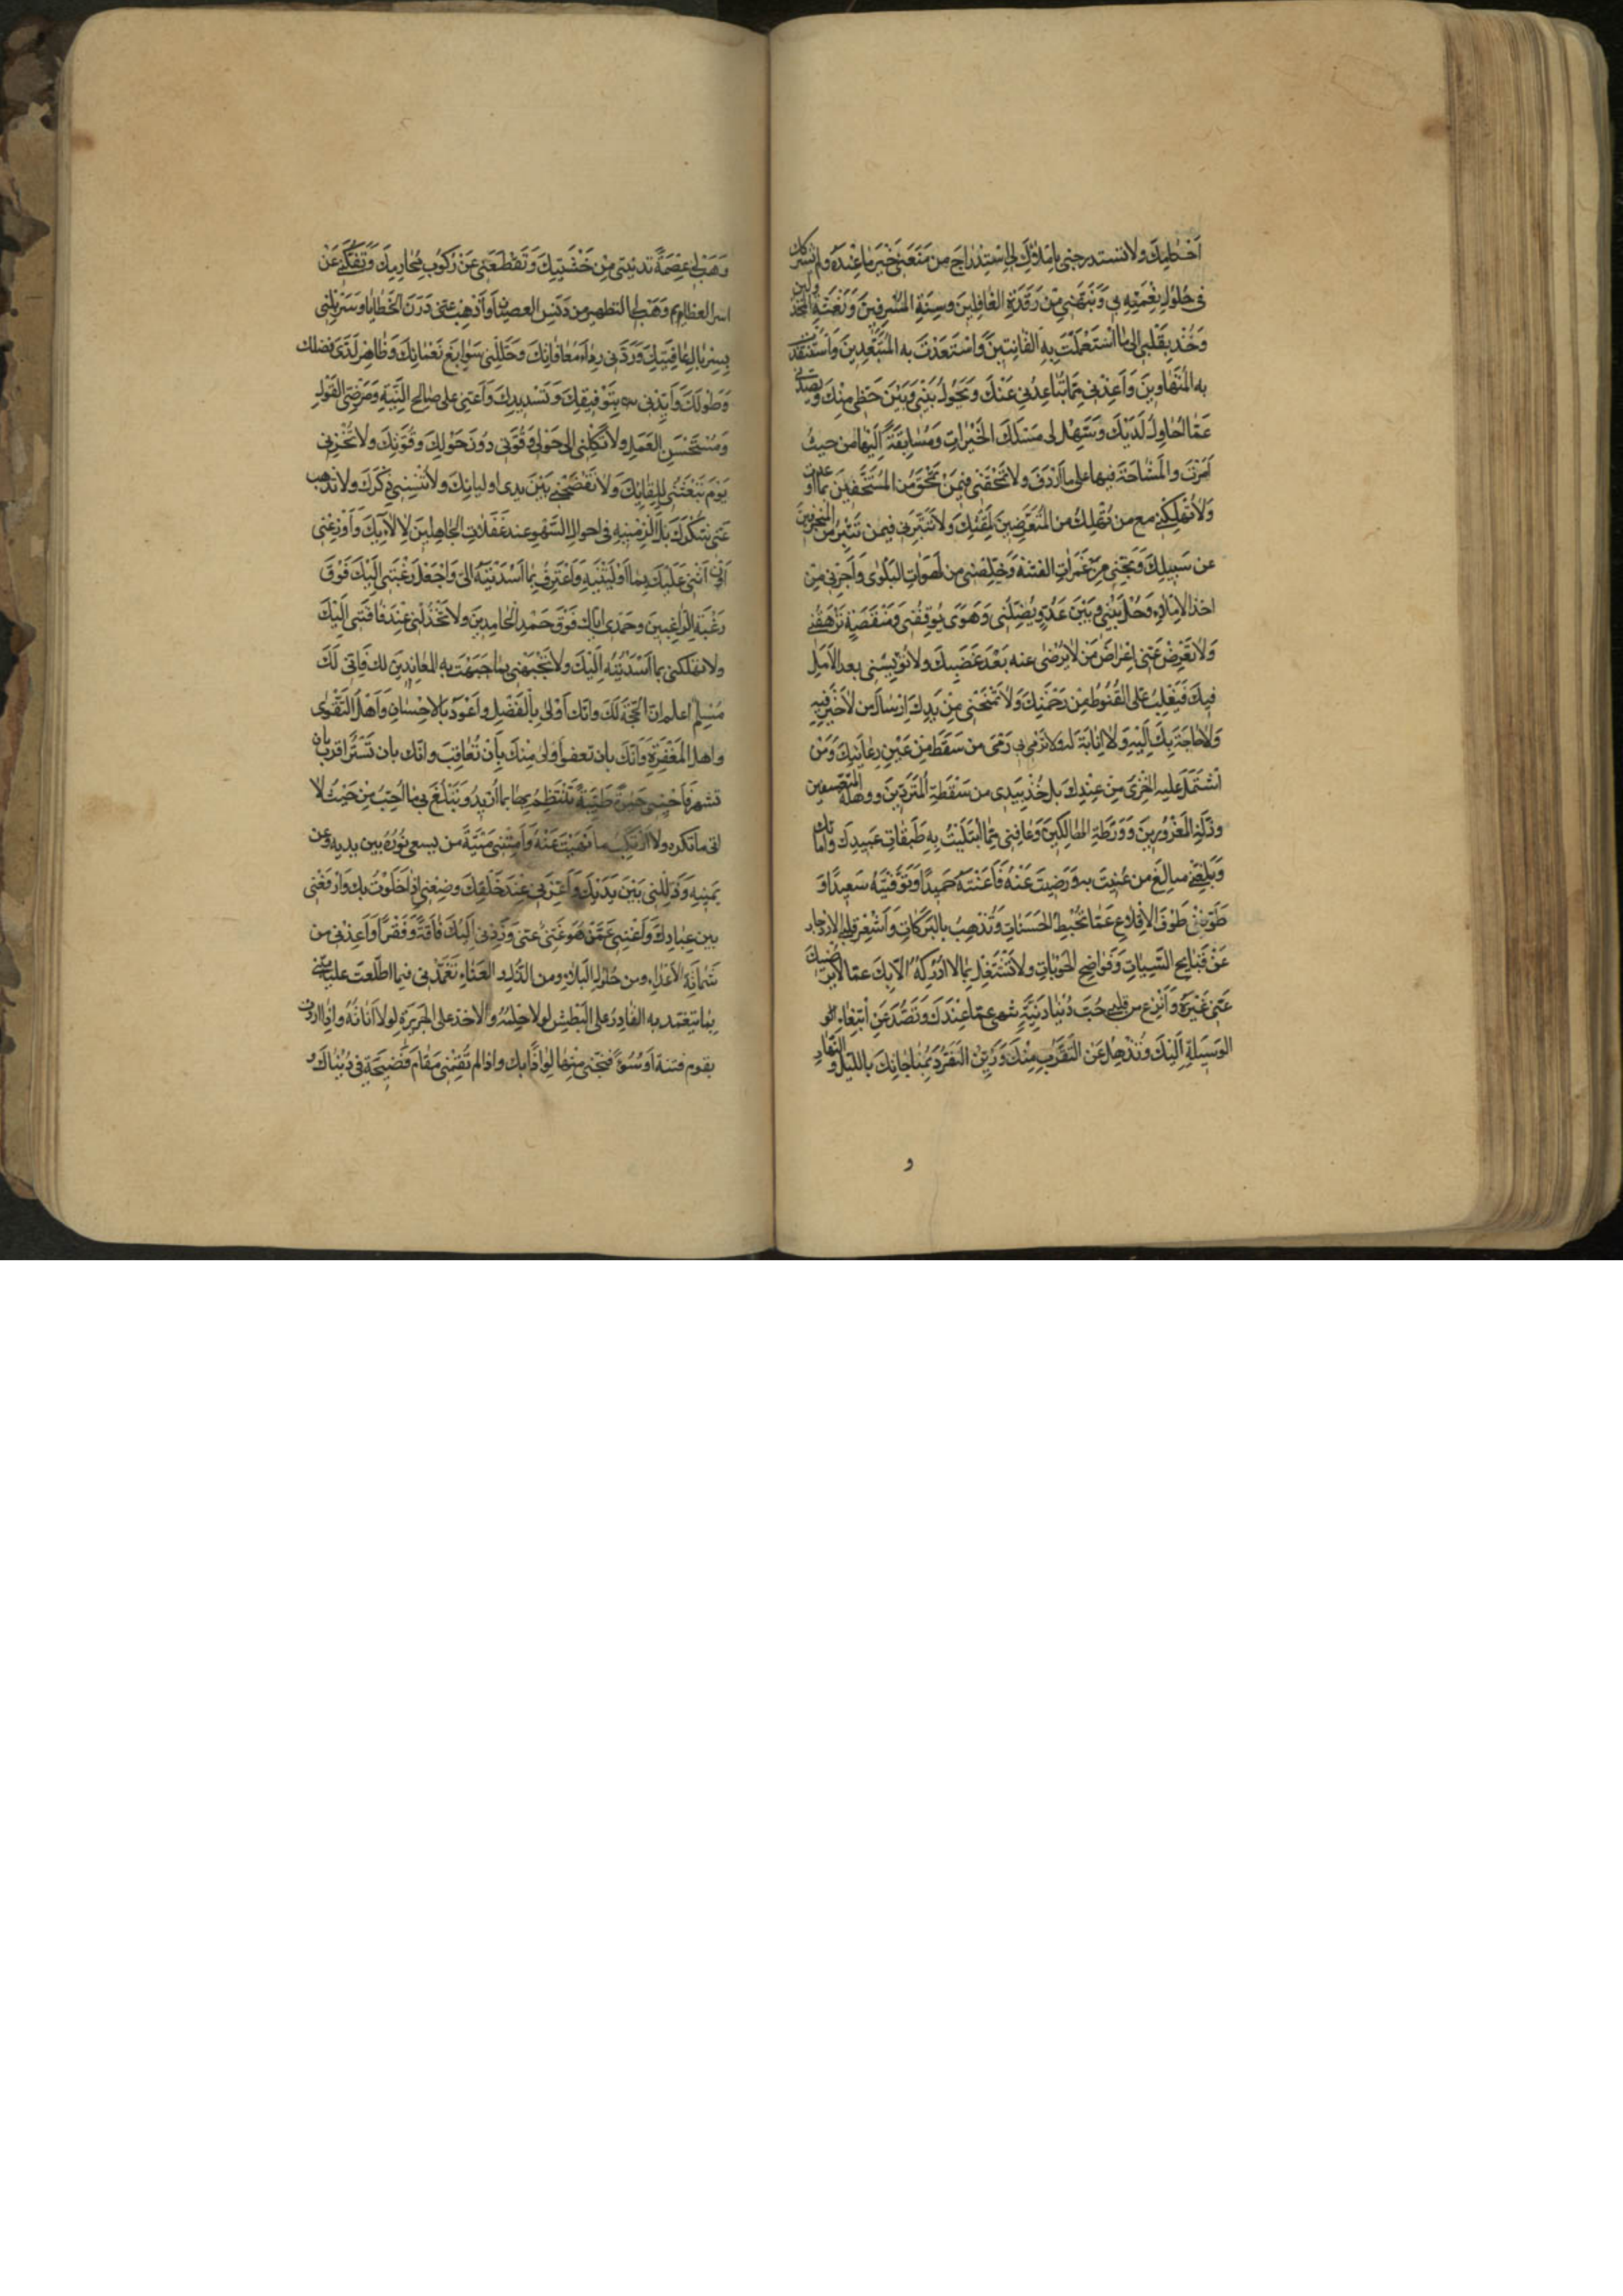 أخطيك ولا تستدرجني بإملائك لي استدراج من منعني خير ما عنده ولم يشركك
في حلول نعمته بي ونبهني من رقدة الغافلين وسنة المسرفين ونعسة المخذولين
وخذ بقلبي الى ما استعملت به القانتين واستعبدت به المتعبدين واستنقذت
به المتهاونين وأعذني مما يباعدني عنك ويحول بيني وبين حظي منك ويصدني
عما احاول لديك وسهل لي مسلك الخيرات ومسابقة اليها من حيث
امرت والمشاحة فيها على ما اردت ولا تمحقني فيمن تمحق من المستخفين بما اوعدت
ولا تهلكني مع من تهلك من المتعرضين لمقتك ولا تتبرني فيمن تتبر من المنحرفين
عن سبيلك ونجني من غمرات الفتنة وخلصني من لهوات البلوى وأجرني من
اخذ الاملاء وحل بيني وبين عدو يضلني وهوى يوبقني ومنقصة ترهقني
ولا تعرض عني إعراض من لا ترضى عنه بعد غضبك ولا تؤيسني بعد الأمل
فيك فيغلب على القنوط من رحمتك ولا تمنحني من يدك ارسال من لا خير فيه
ولا حاجة بك اليه ولا انابة له ولا ترم بي رمى من سقط من عين رعايتك ومن
اشتمل عليه الخزى من عندك بل خذ بيدى من سقطة المتردين ووهلة المتعسفين
وزلة المغرورين وورطة الهالكين وعافني مما ابتليت به طبقات عبيدك وامائك
وبلغني مبالغ من عنيت به ورضيت عنه فأعشته حميدا وتوفيته سعيدا و
طوقني طوق الإقلاع عما يحبط الحسنات وتذهب بالبركات وأشعر قلبي الازدجار
عن قبايح السيئات وفواضح الحوبات ولا تشتغل بما لا ادركه الا بك عما لا يرضيك
عنى غيره وأنزع من قلبي حب دنيا دنية تنهى عما عندك وتصد عن ابتغاء
الوسيلة اليك وتذهل عن التقرب منك وزين التفرد بمناجاتك بالليل والنهار
و
وهب لي عصمة تدنيني من خشيتك وتقطعني عن ركوب محارمك وتفكني عن
اسر العظايم وهب لي التطهير من دنس العصيان وأذهب عني درن الخطايا وسربلني
بسربال عافيتك وردني رداء معافاتك وجللني سوابغ نعمائك وظاهر لدى فضلك
وطولك وأيدني بتوفيقك وتسديدك وأعني على صالح النية ومرضي القول
ومستحسن العمل ولا تكلني الى حولي وقوتي دون حولك وقوتك ولا تخزني
يوم تبعثني للقائك ولا تفضحني بين يدى اوليائك ولا تنسني ذكرك ولا تذهب
عني شكرك بل ألزمنيه في احوال السهو عند غفلات الجاهلين لآلائك وأوزعني
أن أثني عليك بما اوليتنيه وأعترف بما أسديته الي واجعل رغبتي اليك فوق
رغبة الراغبين وحمدى اياك فوق حمد الحامدين ولا تخذلني عند فاقتي اليك
ولا تهلكني بما أسديته اليك ولا تجبهني بما جبهت به المعاندين لك فاني لك
مسلم اعلم ان الحجة لك وانك أولى بالفضل وأعود بالإحسان وأهل التقوى
واهل المغفرة وأنك بان تعفو أولى منك بأن تعاقب وانك بان تستر اقرب بان
تشهر فأحيني حيوة طيبة تنتظم بما اريد وتبلغ بي ما احب من حيث لا
اتى ما تكره ولا ارتكب ما نهيت عنه وأمتني ميتة من يسعى نوره بين يديه وعن
يمينه وذللني بين يديك وأعزني عند خلقك وضعني إذا خلوت بك وارفعني
بين عبادك وأغنني عمن هو غني عني وزدني اليك فاقة وفقرا وأعذني من
شماتة الاعداء ومن حلول البلاء ومن الذل والعناء تغمدني فيما اطلعت عليه مني
بما يتغمد به القادر على البطش لولا حلمه والآخذ على الجريرة لولا أناته واذا اردت
بقوم فتنة او سوءا فنجني منها لواذا بك واذ لم تقمني مقام فضيحة في دنياك و